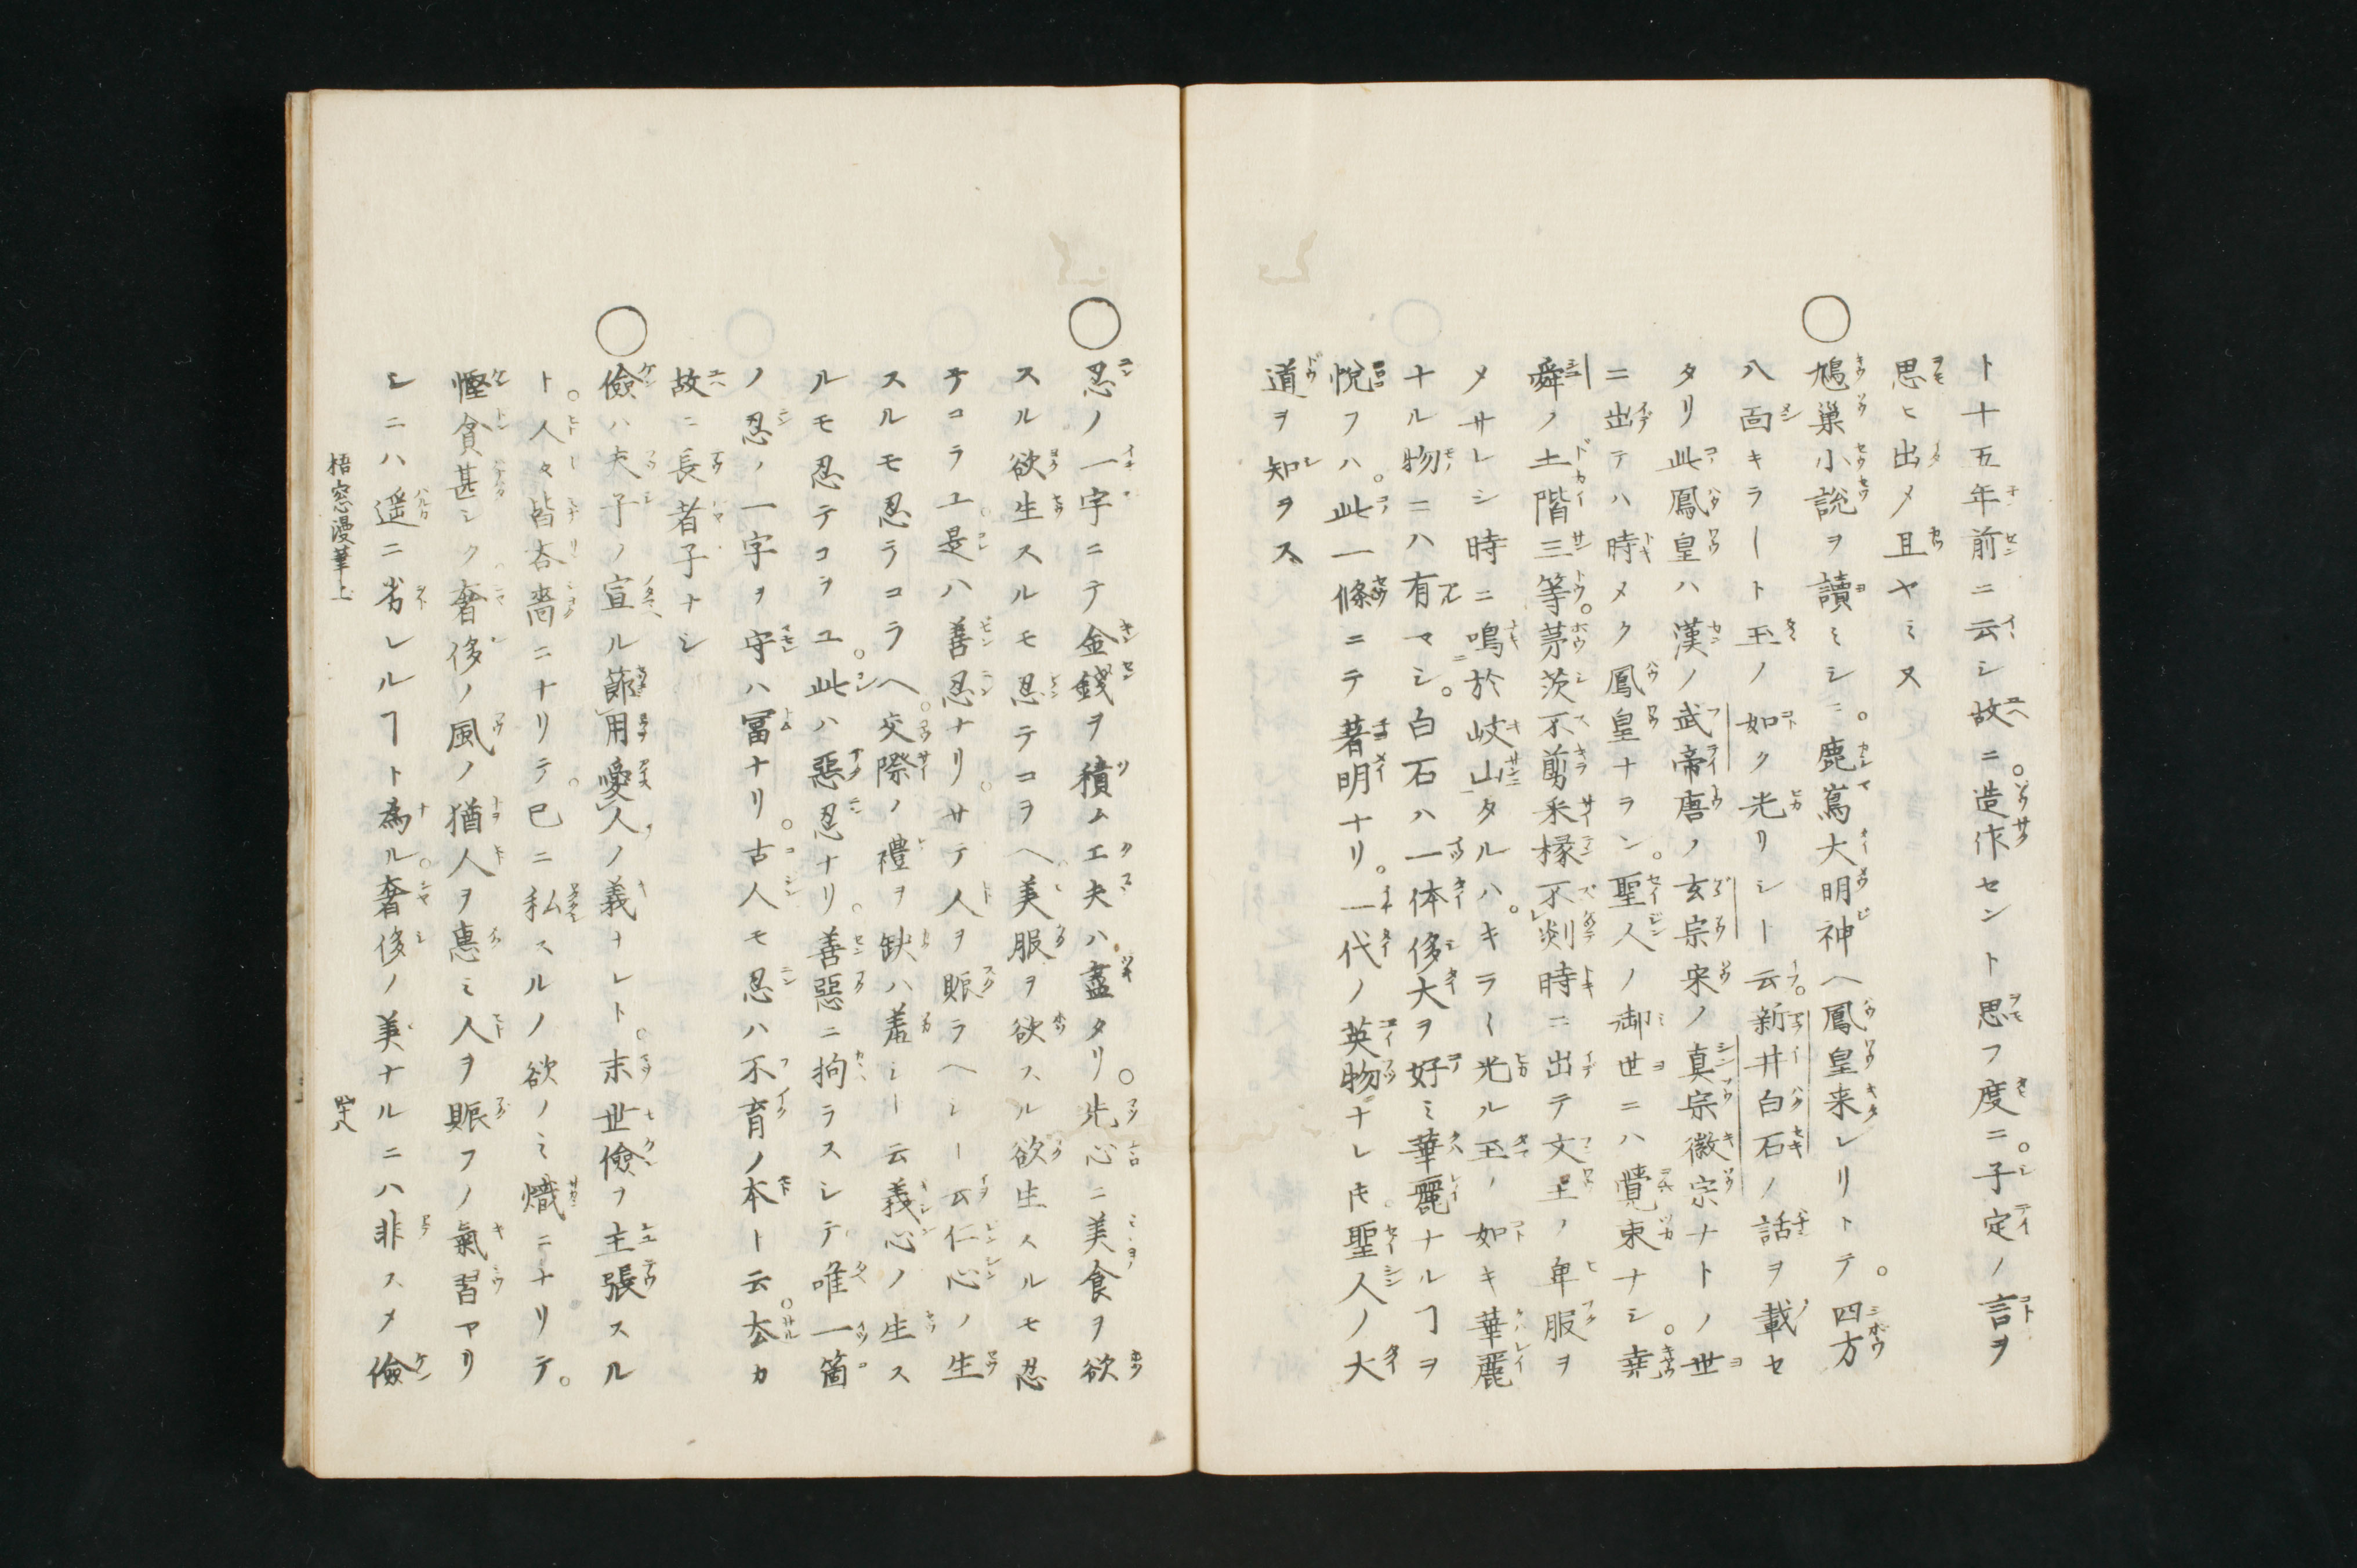 ト十五年前ニ云シ故ニ。造作セント思フ度ニ。子定ノ言ヲ
思ヒ出メ且ヤミヌ
○鳩巣小説ヲ讀ミシニ。鹿嶌大明神ヘ鳳皇来レリトテ。四方
八面キラ〳〵ト玉ノ如ク光リシト云。新井白石ノ話ヲ載セ
タリ此鳳皇ハ漢ノ武帝唐ノ玄宗宋ノ真宗徽宗ナトノ世
ニ出テハ時メク鳳皇ナラン。聖人ノ御世ニハ覺束ナシ。堯
舜ノ土階三等。茅茨不剪采椽不㓨時ニ出テ文王ノ卑服ヲ
メサレシ時ニ鳴於岐山タルハ。キラ〳〵光ル玉ノ如キ華麗
ナル物ニハ有マシ。白石ハ一体侈大ヲ好ミ華麗ナルヿヲ
悅フハ。此一條ニテ著明ナリ。一代ノ英物ナレ𪜈。聖人ノ大
道ヲ知ヲス
○忍ノ一字ニテ金錢ヲ積ム工夫ハ盡タリ。先心ニ美食ヲ欲
スル欲生スルモ忍テコラヘ。美服ヲ欲スル欲生スルモ忍
テコラユ。是ハ善忍ナリ。サテ人ヲ賑ラヘシト云仁心ノ生
スルモ忍ラコラヘ。交際ノ禮ヲ缺ハ羞シト云義心ノ生ス
ルモ忍テコラユ。此ハ惡忍ナリ。善惡ニ拘ラスシテ。唯一箇。
ノ忍ノ一字ヲ守ハ冨ナリ。古人モ忍ハ不育ノ本ト云。杏カ
故ニ長者子ナシ
○儉ハ夫子ノ宣ル節用愛人ノ義ナレト。末世儉ヲ主張スル
ト。人々皆吝嗇ニナリテ。已ニ私スルノ欲ノミ熾ニナリテ。
慳貪甚シク奢侈ノ風ノ猶人ヲ惠ミ人ヲ賑フノ氣習アリ
シニハ遥ニ劣レルヿト為ル。奢侈ノ美ナルニハ非スメ儉
梧窓漫筆上
四十八